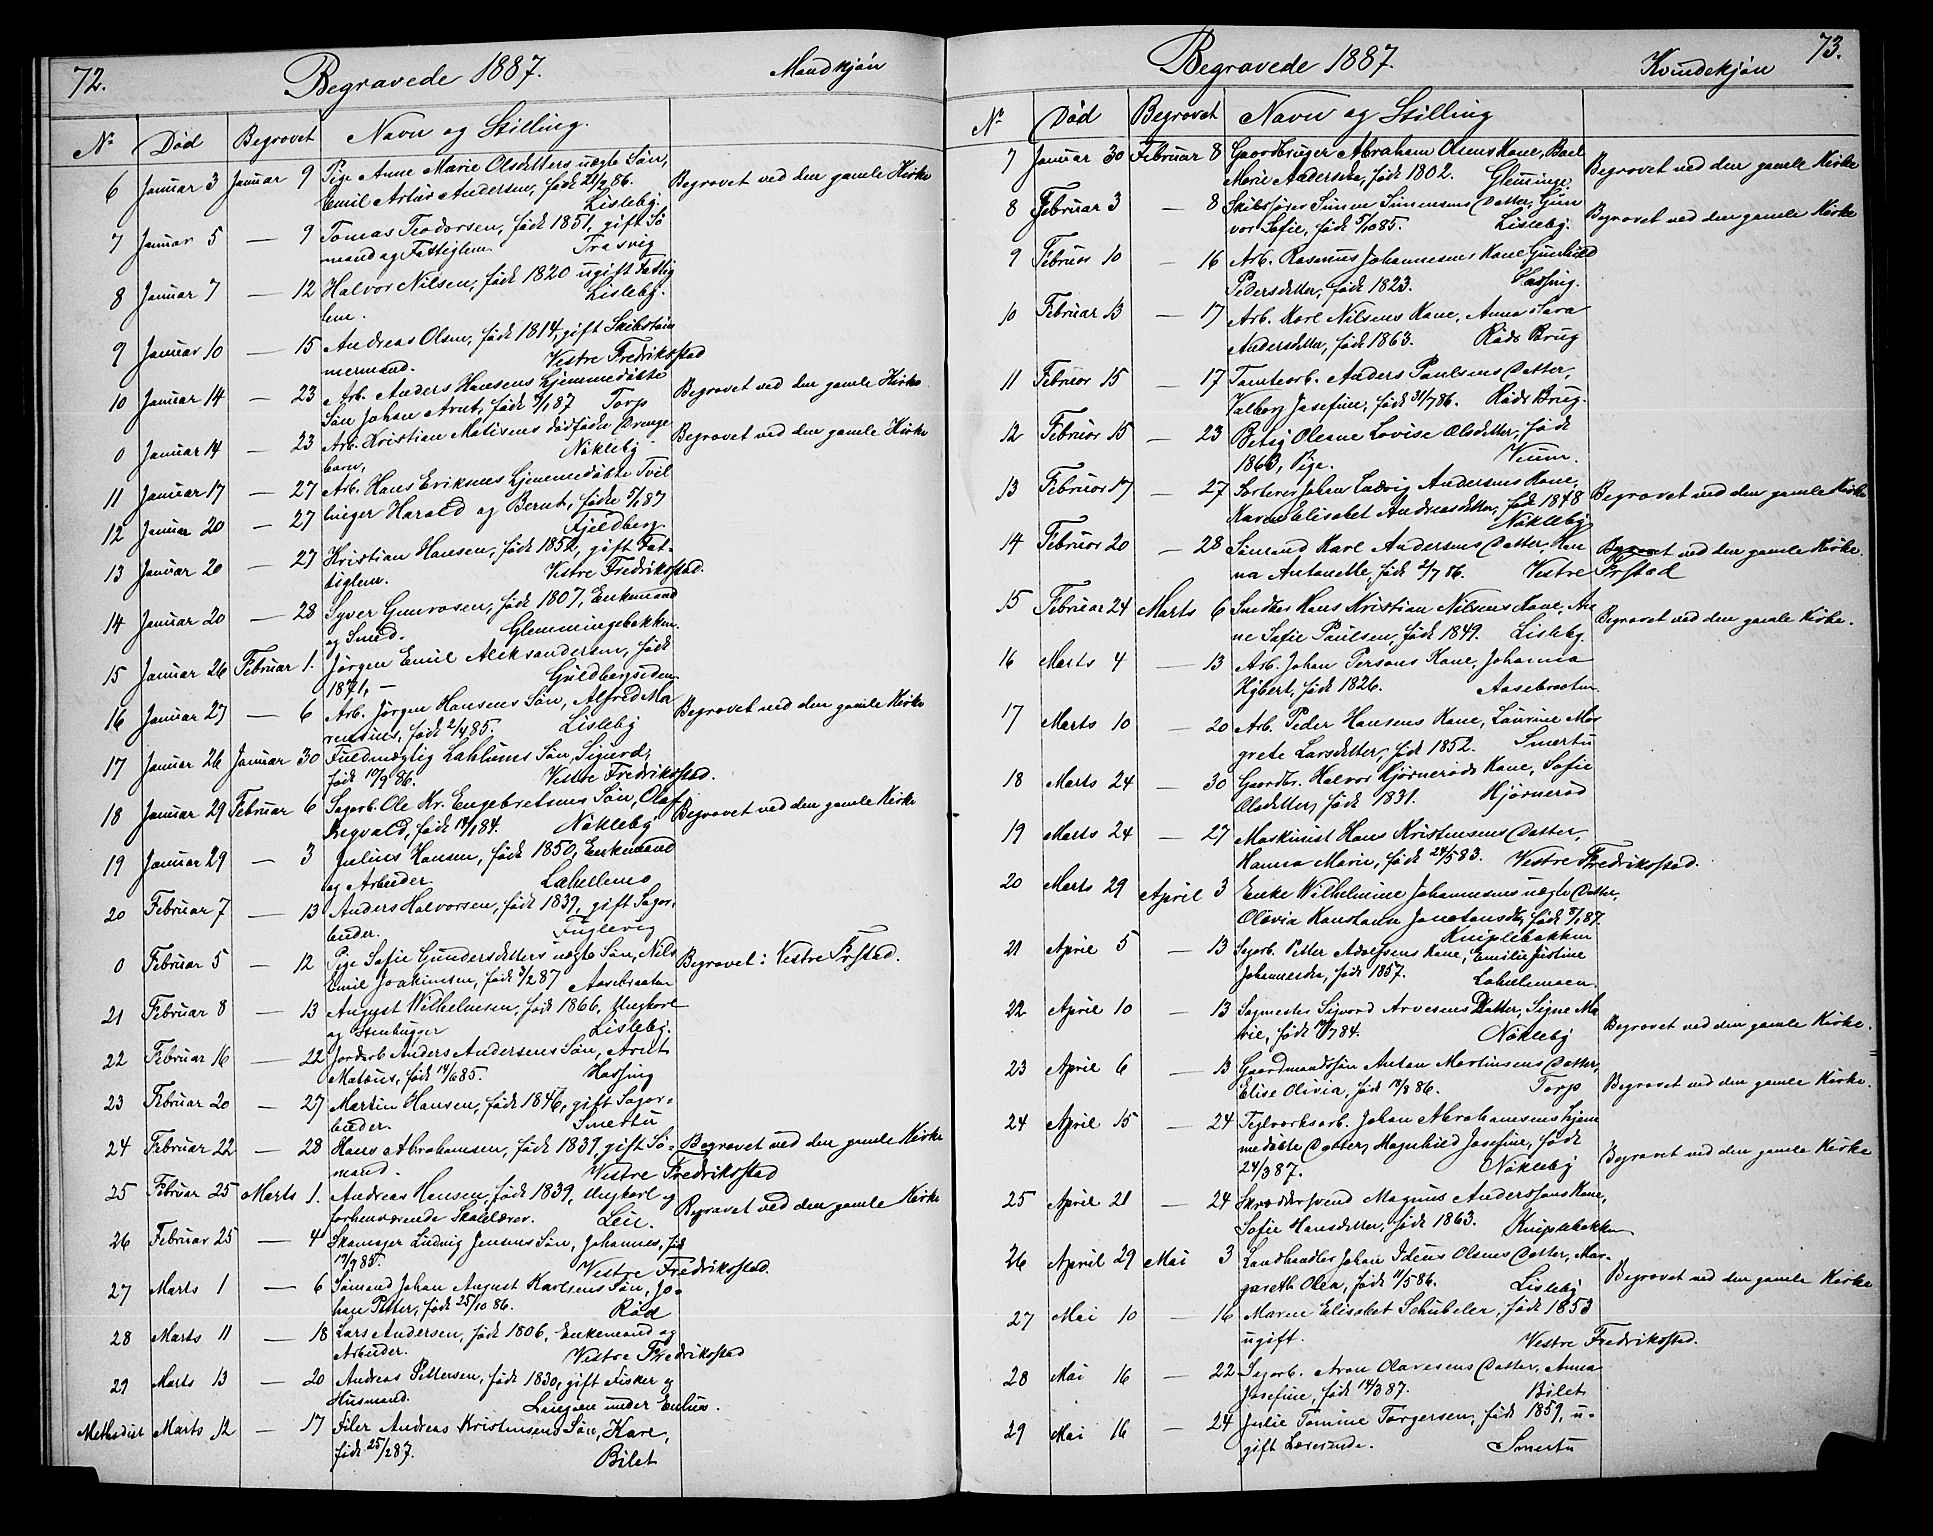 72.
Begravede 1887.
Mandkjøn
No
Død
Begravet
Navn og Stilling.
6 Januar 3 Januar 9 Pige Anne Marie Olsdatters uægte Søn,
Emil Artur Andersen, født 21/7 86. Begravet ved den gamle Kirke
Lisleby.
7 Januar 5 — 9 Tomas Teodorsen, født 1851, gift Sø
mand og Fattiglem. Trasvig
8 Januar 7 — 12 Halvor Nilsen, født 1820 ugift Fattig
lem. Lisleby.
9 Januar 10 — 15 Andreas Olsen, født 1814, gift Skibstøm
mermand. Vestre Fredriksstad
10 Januar 14 — 23 Arb. Anders Hansens hjemmedøbte
Søn Johan Arnt, født 9/1 87 Torp Begravet ved den gamle Kirke
0 Januar 14 — 23 Arb. Kristian Matisens dødfødte Drenge
barn, Nøkleby Begravet ved den gamle Kirke
11 Januar 17 — 27 Arb. Hans Eriksens hjemmedøbte Tvil
12 Januar 20 — 27 linger Harald og Bernt, fødte 5/1 87
Fjeldberg
13 Januar 20 — 27 Kristian Hansen, født 1852, gift Fat-
tiglem. Vestre Fredriksstad.
14 Januar 20 — 28 Syver Gunrosen, født 1807, Enkemand
og Smed. Glemmingebakken.
15 Januar 26 Februar 1. Jørgen Emil Aleksandersen, født
1871, — Guldbergsiden.
16 Januar 27 — 6 Arb. Jørgen Hansens Søn, Alfred Ma
rensius, født 2/4 85. Lisleby Begravet ved den gamle Kirke
17 Januar 26 Januar 30 Fuldmægtig Lahlums Søn, Sigurd,
født 19/9 86. Vestre Fredriksstad.
18 Januar 29 Februar 6 Sagarb. Ole Kr. Engebretsens Søn, Olaf
Regvald, født 14/1 84. Nøkleby Begravet ved den gamle Kirke
19 Januar 29 — 3 Julius Hansen, født 1850, Enkemand
og Arbeider. Lahellemo
20 Februar 7 — 13 Anders Halvorsen, født 1839, gift Sagar-
beider. Fuglevig
0 Februar 5 — 12 Pige Sofie Gundersdatters uægte Søn, Nils
Emil Joakimsen, født 3/2 87 Aasebraaten Begravet i Vestre Frstad.
21 Februar 8 — 13 August Wilhelmsen, født 1866, Ungkarl
og Stenhugger Lisleby.
22 Februar 16 — 22 Jordarb. Anders Andersens Søn, Arnt
Mateus, født 14/6 85. Hassing
23 Februar 20 — 27 Martin Hansen, født 1846, gift Sagar-
beider. Smertu
24 Februar 22 — 28 Hans Abrahamsen, født 1837, gift Sø-
mand. Vestre Fredriksstad Begravet ved den gamle Kirke
25 Februar 25 Marts 1. Andreas Hansen, født 1839, Ungkarl og
forhenværende Skolelærer. Leie. Begravet ved den gamle Kirke
26 Februar 25 — 4 Skomager Ludvig Jensens Søn, Johannes, født
17/9 85. Vestre Fredriksstad.
27 Marts 1 — 6 Sømand Johan August Karlsens Søn, Jo-
han Petter, født 25/10 86. Rød
28 Marts 11 — 18 Lars Andersen, født 1806, Enkemand og
Arbeider. Vestre Fredriksstad
29 Marts 13 — 20 Andreas Pettersen, født 1830, gift Fisker og
Husmand. Langøen under Enhus.
Methodist Marts 12 — 17 Filer Andreas Kristensens Søn, Karl,
født 25/2 87. Bilet
73.
Begravede 1887.
Kvindekjøn
No
Død
Begravet
Navn og Stilling
7 Januar 30 Februar 8 Gaardbruger Abrahan Olsens Kone, Boel
Marie Andersen, født 1802. Glemminge. Begravet ved den gamle Kirke
8 Februar 3 — 8 Skibsfører Simen Simensens Datter, Gun
vor Sofie, født 5/10 85. Lisleby. Begravet ved den gamle Kirke
9 Februar 10 — 16 Arb. Rasmus Johannesens Kone Gunhild
Pedersdatter, født 1823. Hassing.
10 Februar 13 — 17 Arb. Karl Nilsens Kone, Anna Sara
Andersdatter, født 1863. Røds Brug
11 Februar 15 — 17 Tomtearb. Anders Paulsens Datter,
Valborg Josefine, født 31/7 86. Røds Brug.
12 Februar 15 — 23 Betsy Olerne Lovise Olsdatter, født
1863, Pige. Veum.
13 Februar 17 — 27 Sorterer Johan Ludvig Andersens Kone,
Karen Elisabet Andreasdatter, født 1848 Begravet ved den gamle Kirke
Nøkleby
14 Februar 20 — 28 Sømand Karl Andersens Datter, Han
na Antonette, født 2/7 86. Vestre Frstad Begravet ved den gamle Kirke.
15 Februar 24 Marts 6 Snedker Hans Kristian Nilsens Kone, An
ne Sofie Paulsen, født 1849. Lisleby Begravet ved den gamle Kirke.
16 Marts 4 — 13 Arb. Johan Persons Kone, Johanna
Hybert, født 1826. Aasebraaten
17 Marts 10 — 20 Arb. Peder Hansens Kone, Laurine Mar
grete Larsdatter, født 1852. Smertu
18 Marts 24 — 30 Gaardbr. Halvor Kjørnerøds Kone, Sofie
Olsdatter, født 1831. Hjørnerød
19 Marts 24 — 27 Maskinist Hans Kristensens Datter,
Hanna Marie, født 24/5 83. Vestre Fredriksstad.
20 Marts 29 April 3 Enke Wilhelmine Johannesens uægte Datter,
Olavia Konstanse Jonetansdtr, født 8/1 87.
Kniplebakken
21 April 5 — 13 Sagarb. Petter Adolfsens Kone, Emilie Justine
Johannesen, født 1857. Lahelemoen
22 April 10 — 13 Sagmester Sigvard Arvesens Datter, Signe Ma
rie, født 19/7 84. Nøkleby Begravet ved den gamle Kirke.
23 April 6 — 13 Gaardmandssøn Anton Martinsens Datter,
Elise Olivia, født 19/3 86. Torp Begravet ved den gamle Kirke.
24 April 15 — 24 Teglværksarb. Johan Abrahamsens hjem
medøbte Datter, Magnhild Josefine, født
24/3 87. Nøkleby Begravet ved den gamle Kirke
25 April 21 — 24 Skræddersvend Magnus Anderssons Kone,
Sofie Hansdatter, født 1863. Kniplebakken
26 April 29 Mai 3 Landhandler Johan Ideus Olsens Datter, Mar-
gareth Olea, født 11/5 86. Lisleby Begravet ved den gamle Kirke
27 Mai 10 — 16 Maren Elisabet Schübeler, født 1853
ugift. Vestre Fredriksstad.
28 Mai 16 — 22 Sagarb. Aron Olavesens Datter, Anna
Josefine, født 14/3 87. Bilet
29 Mai 16 — 24 Julie Tomine Torgersen, født 1859, u-
gift Lærerinde. Smertu